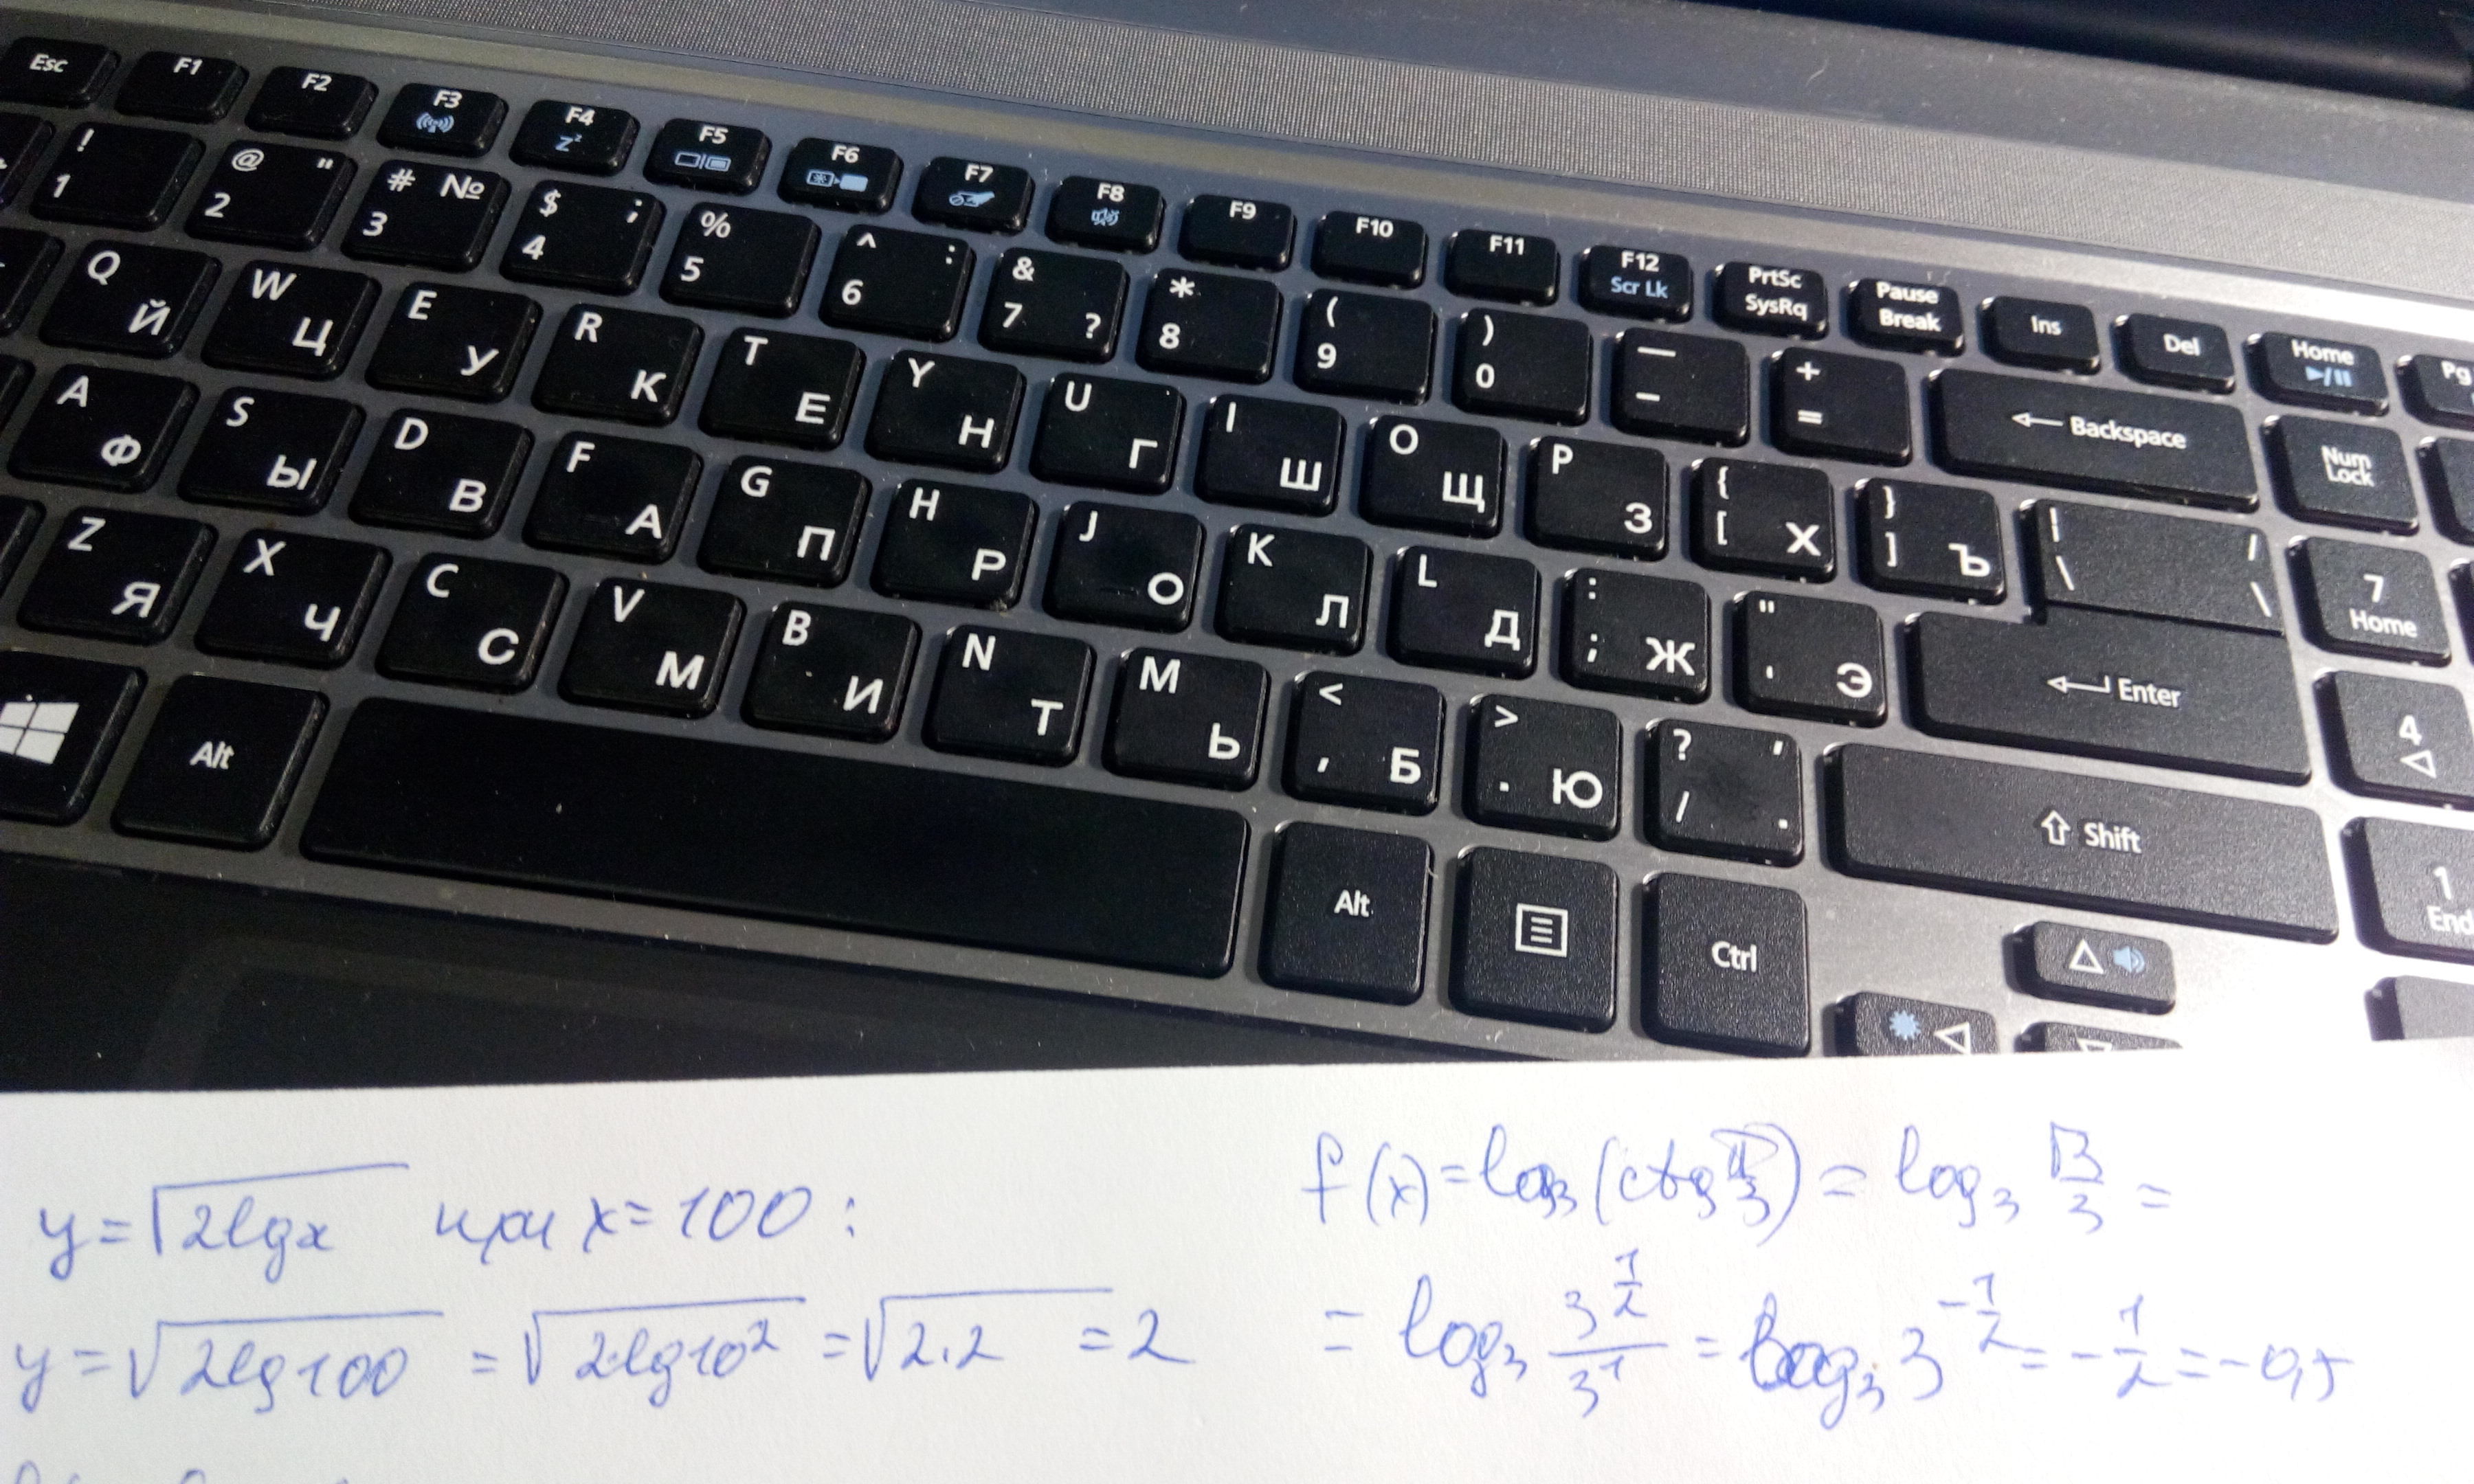 Esc F1 F2 F3 F4 Zz F5 F6 F7 F8 F9 F10 F11 F12 Scr Lk PrtSc SysRq Pause Break Ins Del Home Pg
! 1 @ " 2 # № 3 $ ; 4 % 5 ^ : 6 & 7 ? * 8 ( 9 ) 0 — - + = ← Backspace Num Lock
Q Й W Ц E У R К T Е Y Н U Г I Ш O Щ P З { [ Х } ] Ъ | \ / \ 7 Home
A Ф S Ы D В F А G П H Р J О K Л L Д : ; Ж " ' Э Enter 4
Z Я X Ч C С V М B И N Т M Ь < , Б > . Ю ? / , . Shift 1 End
Alt Alt Ctrl
y=√2lgx при x=100:
y=√2lg100 =√2lg10² =√2.2 =2
f(x)=log₃(ctg π/3)= log₃ √3/3 =
= log₃ 3^(1/2)/3^1 = log₃ 3^(-1/2) = -1/2 = -0,5